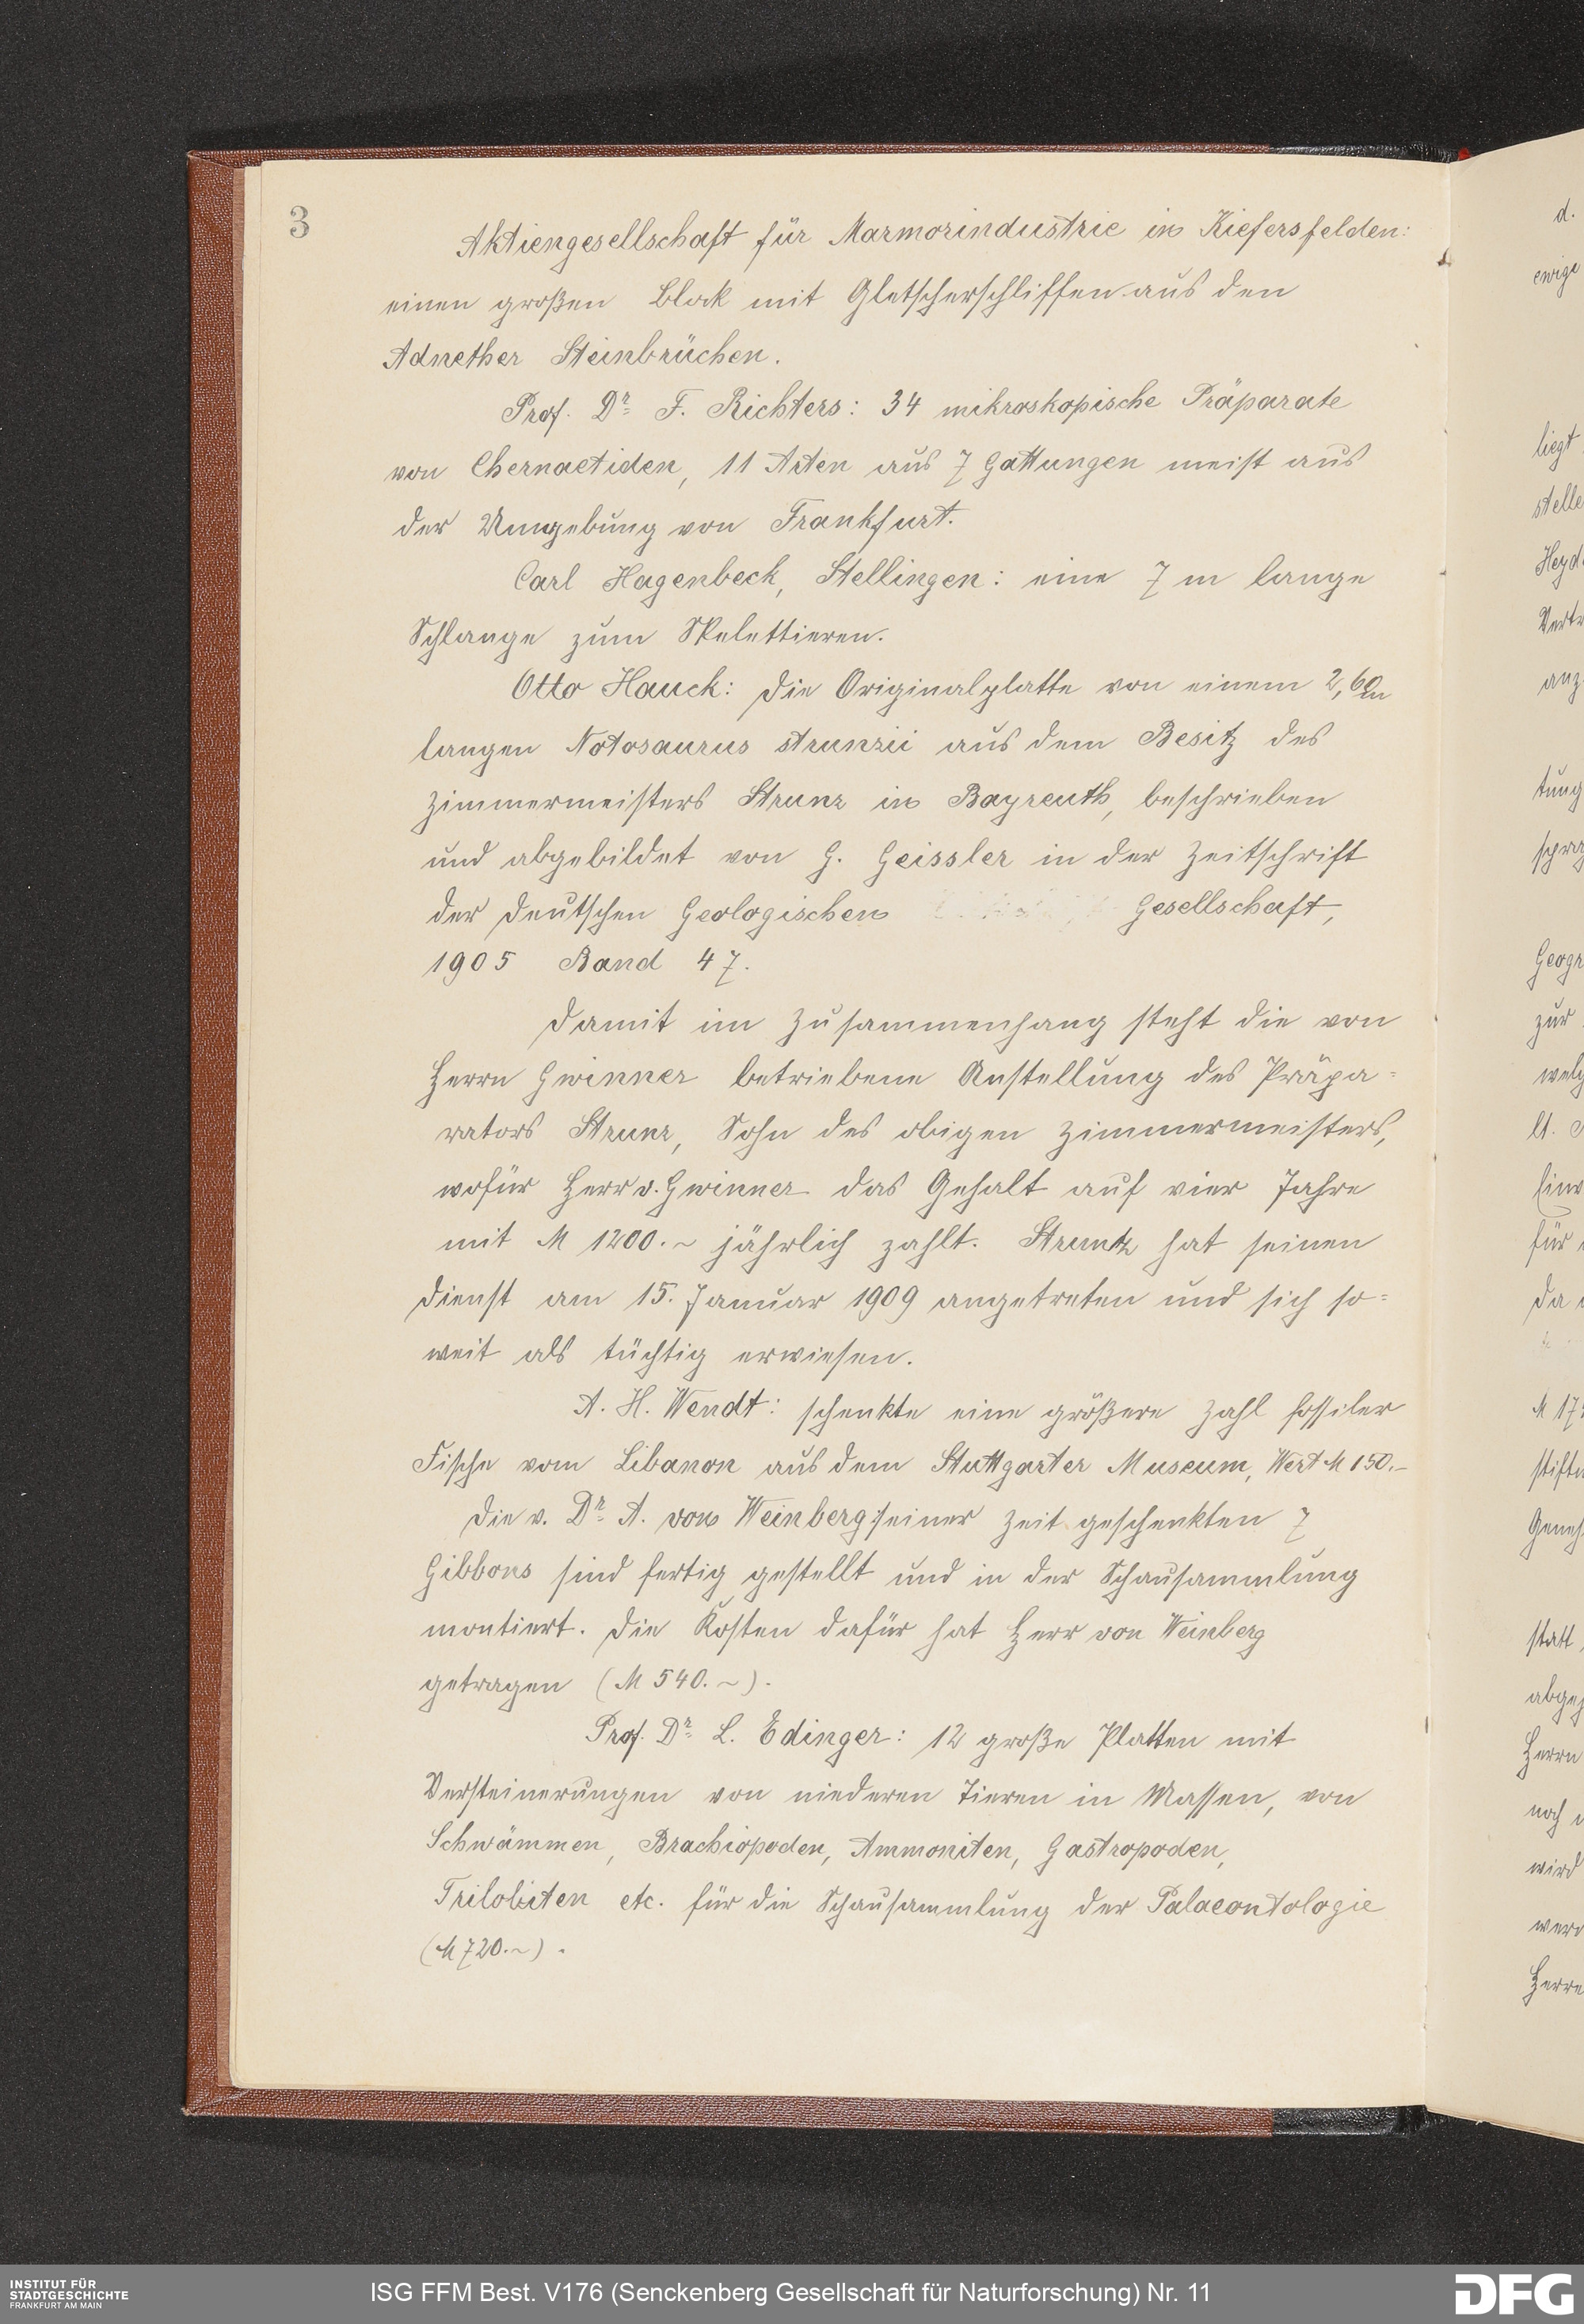 3
Aktiengesellschaft für Marmorindustrie in Kiefersfelden:
einen großen Block mit Gletscherschliffen aus den
Adnether Steinbrüchen.
Prof. Dr. F. Richters: 34 mikroskopische Präparate
von Chernaetiden, 11 Arten aus 7 Gattungen meist aus
der Umgebung von Frankfurt.
Carl Hagenbeck, Stellingen: eine 7 m lange
Schlange zum Skelettieren.
Otto Hauck: Die Originalplatte von einem 2,60m
langen Notosaurus strunzii aus dem Besitz des
Zimmermeisters Strunz in Bayreuth, beschrieben
und abgebildet von G. Geissler in der Zeitschrift
der Deutschen Geologischen Gesellschaft,
1905 Band 47.
Damit im Zusammenhang steht die von
Herrn Gwinner betriebene Anstellung des Präpa-
rators Strunz, Sohn des obigen Zimmermeisters,
wofür Herr v. Gwinner das Gehalt auf vier Jahre
mit M 1200.~ jährlich zahlt. Struntz hat seinen
Dienst am 15. Januar 1909 angetreten und sich so-
weit als tüchtig erwiesen.
A. H. Wendt: schenkte eine größere Zahl fossiler
Fische vom Libanon aus dem Stuttgarter Museum, Wert M 150.–
Die v. Dr. A. von Weinberg seiner Zeit geschenkten 7
Gibbons sind fertig gestellt und in der Schausammlung
montiert. Die Kosten dafür hat Herr von Weinberg
getragen (M 540.~).
Prof. Dr. L. Edinger: 12 große Platten mit
Versteinerungen von niederen Tieren in Massen, von
Schwämmen, Brachiopoden, Ammoniten, Gastropoden,
Trilobiten etc. für die Schausammlung der Palaeontologie
(M 720.~).
d.
ewige
liegt
stelle
Heyd
Vertr
anz
tung
Geogr
zur
lt.
für
da
M 17
stifte
Geneh
statt
abgez
Herrn
noch
wird
werd
Herre
INSTITUT FÜR
STADTGESCHICHTE
FRANKFURT AM MAIN
ISG FFM Best. V176 (Senckenberg Gesellschaft für Naturforschung) Nr. 11
DFG